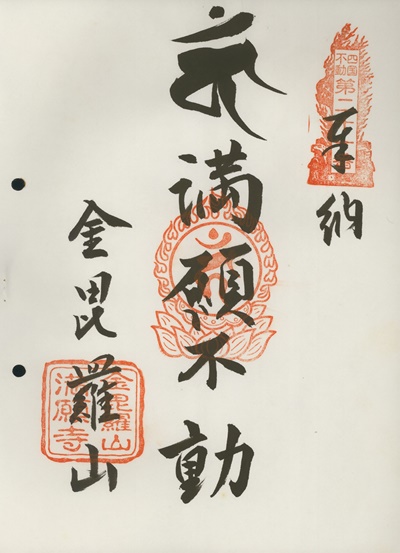 奉納
四国
不動
第二十
満願不動
金毘羅山
金毘羅山
満願寺